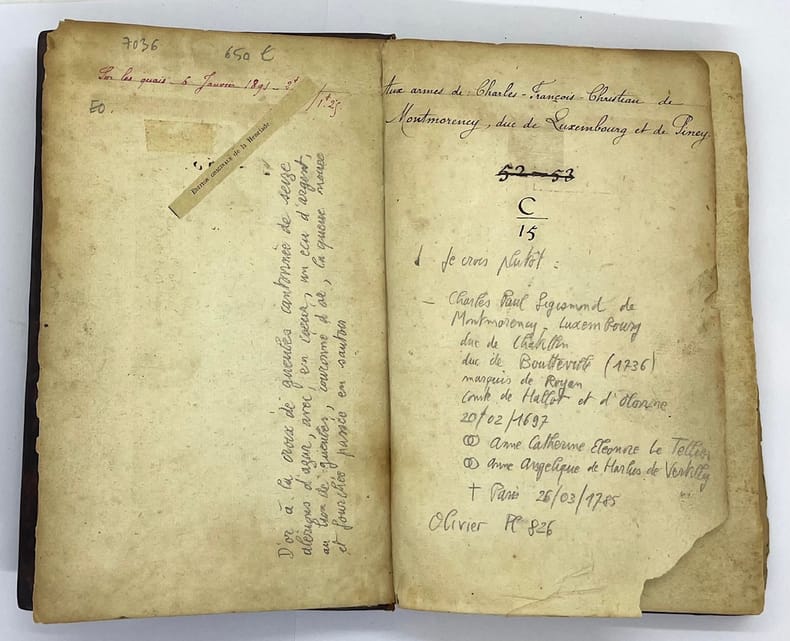 7036
650 €
Sur les quais 5 Janvier 1891 - 2f
/1f.25
EO.
Edition originale de la Henriade
D'or à la croix de gueules cantonnée de seize
alérions d'azur, avec, en cœur, un écu d'argent,
au lion de gueules, couronné d'or, la queue nouée
et fourchée passée en sautoir
Aux armes de Charles-François-Christian de
Montmorency, duc de Luxembourg et de Piney.
52-53
C
15
Je crois plutôt :
- Charles Paul Sigismond de
Montmorency-Luxembourg
duc de Chatillon
duc de Boutteville (1736)
marquis de Royan
comte de Hallot et d'Olonne
20/02/1697
Anne Catherine Eleonore Le Tellier
Anne Angelique de Harlus de Vertilly
† Paris 26/03/1785
Olivier Pl 826